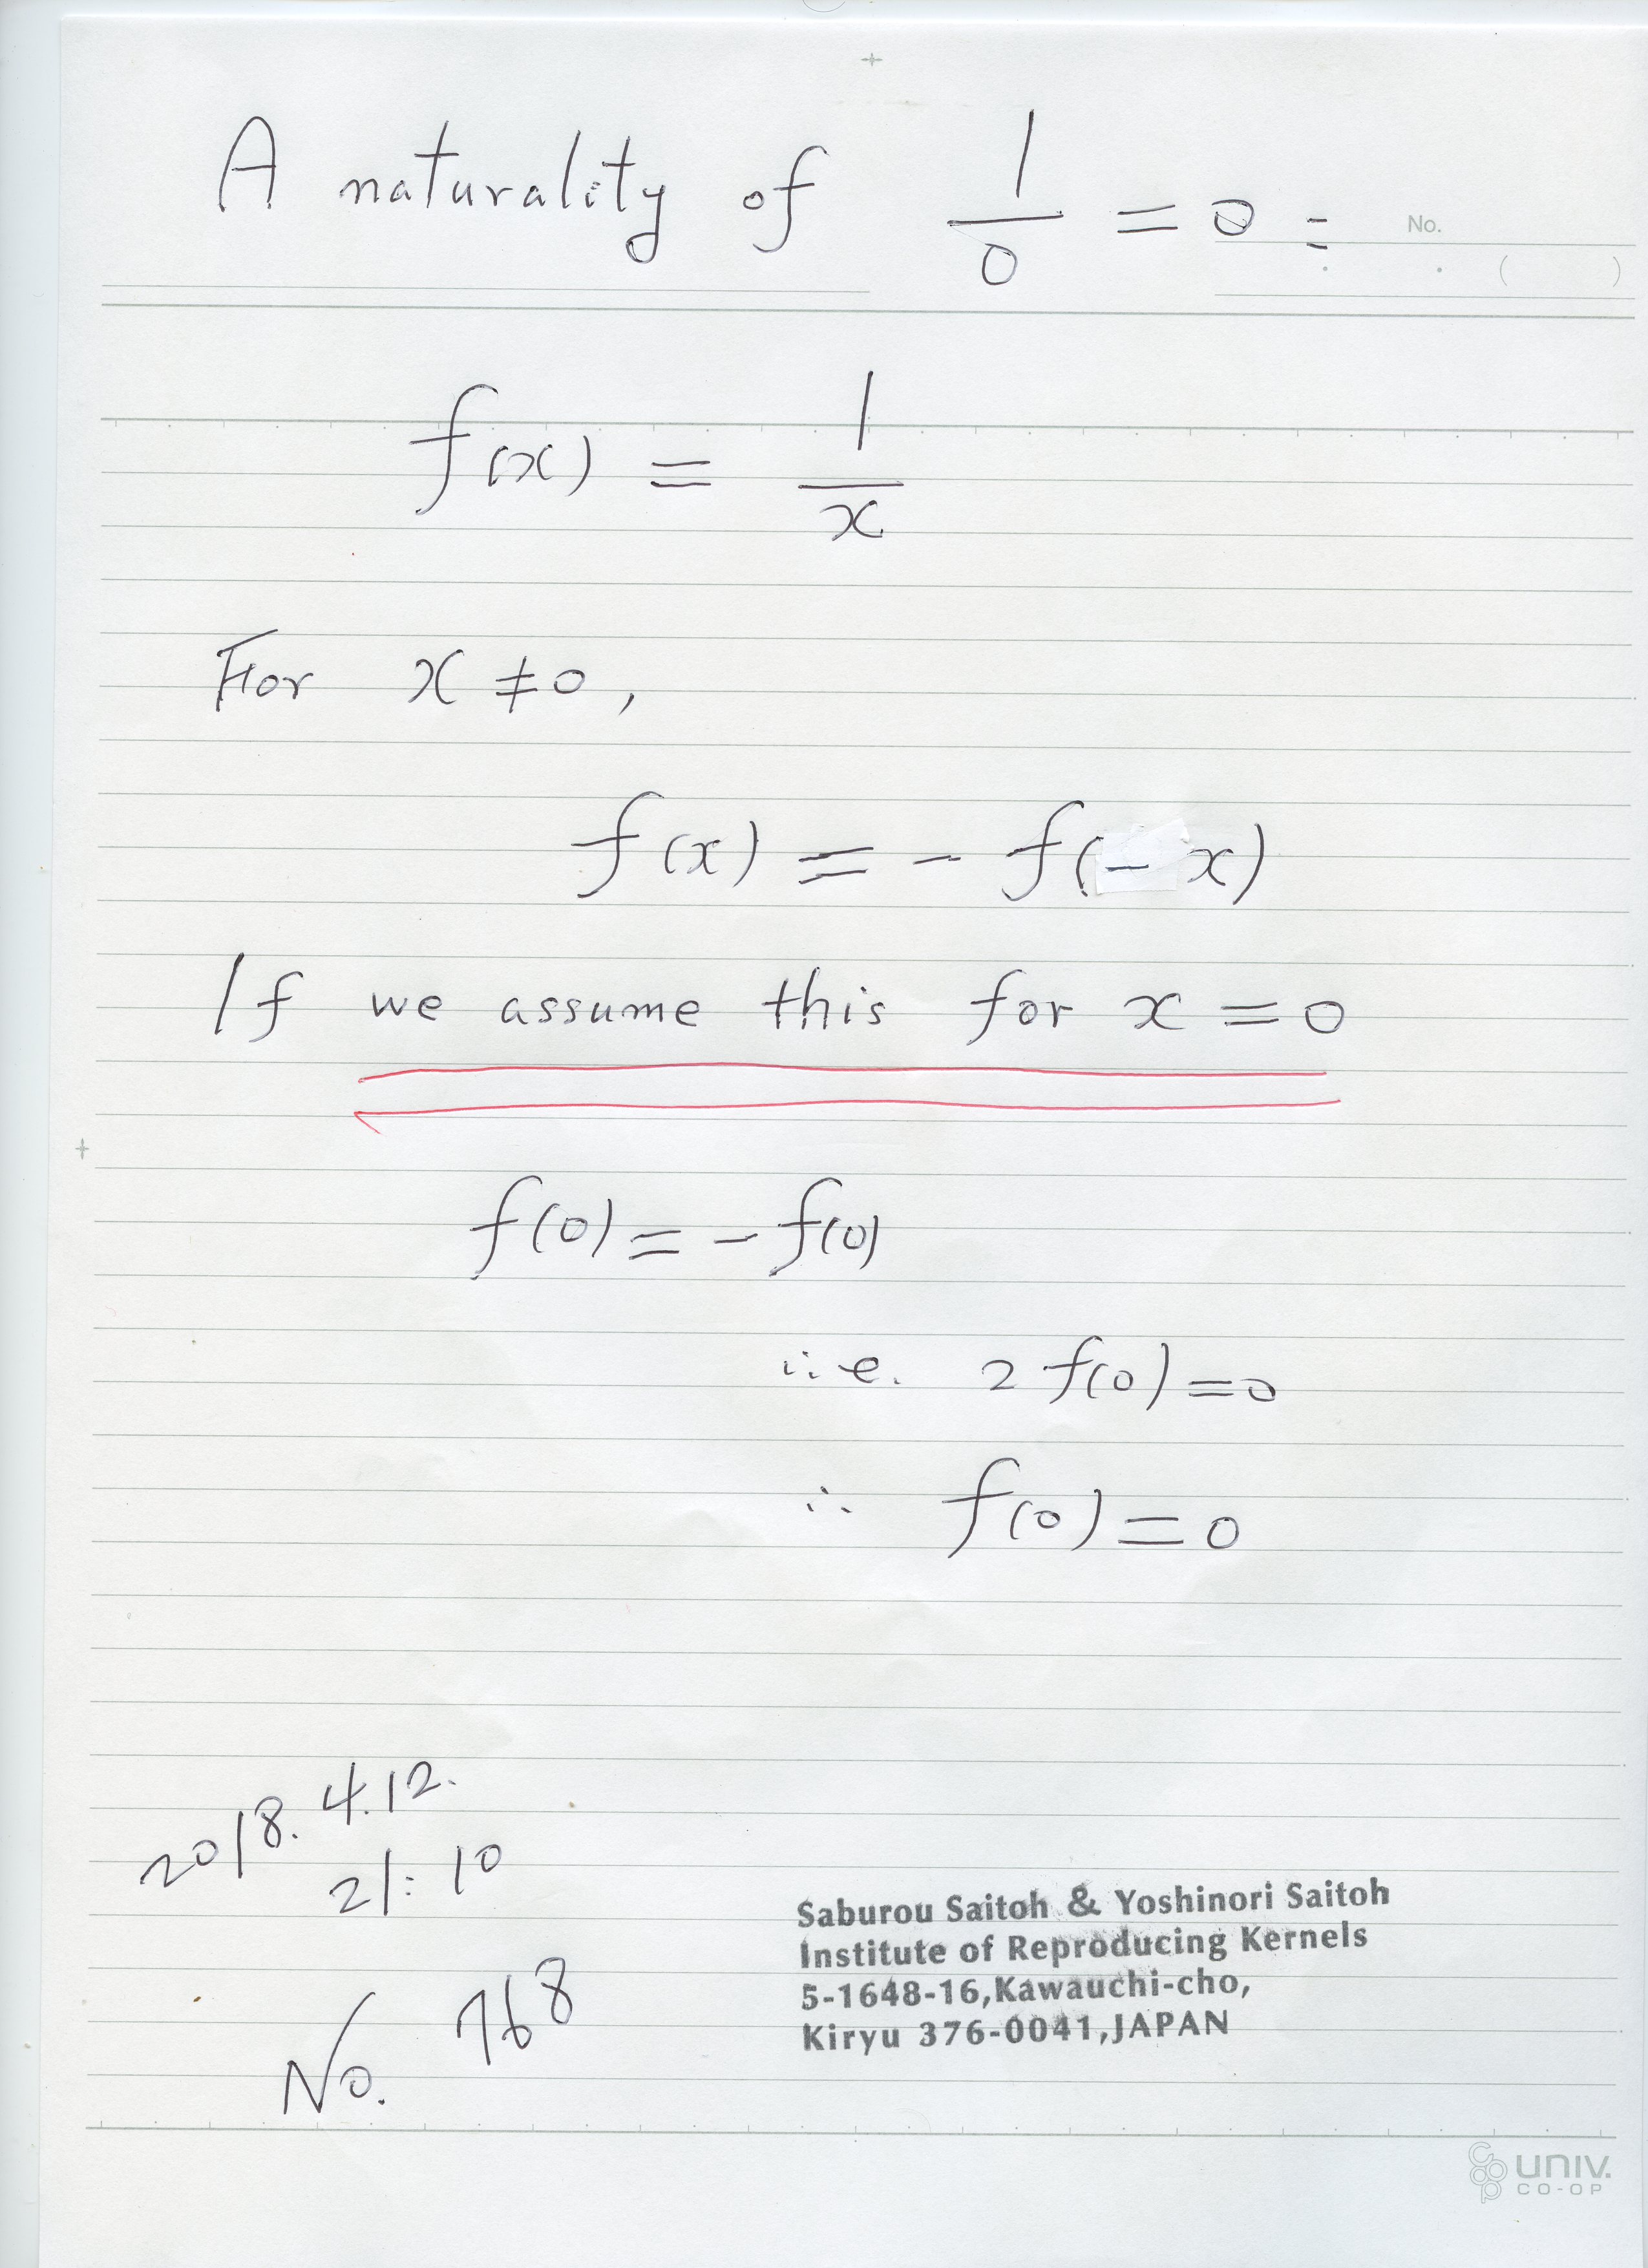 A naturality of 1/0 = 0 :
No.
( )
f(x) = 1/x
For x ≠ 0,
f(x) = - f(-x)
If we assume this for x = 0
f(0) = - f(0)
i.e. 2 f(0) = 0
∴ f(0) = 0
2018. 4.12.
21:10
No. 768
Saburou Saitoh & Yoshinori Saitoh
Institute of Reproducing Kernels
5-1648-16,Kawauchi-cho,
Kiryu 376-0041,JAPAN
UNIV.
CO-OP